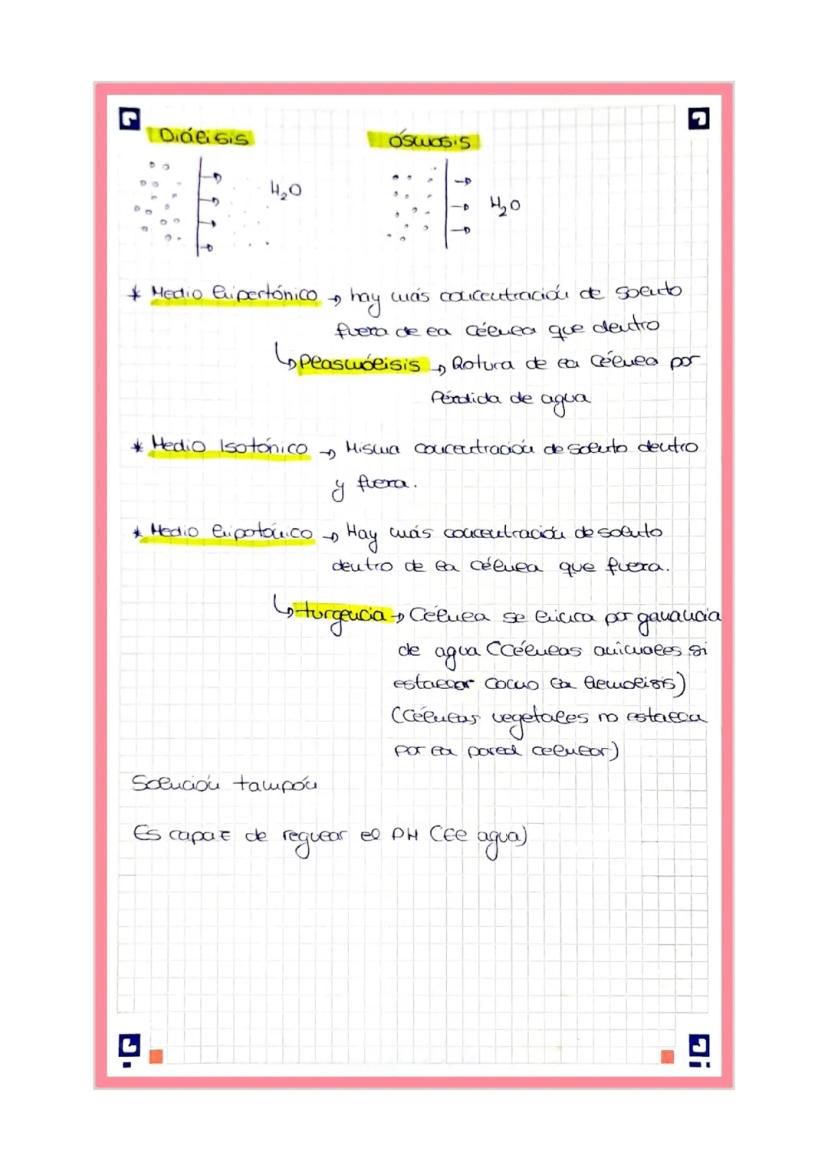 Diálisis
Ósmosis
H₂O
H₂O
* Medio hipertónico → hay más concentración de soluto
fuera de la célula que dentro
↳ Plasmólisis → Rotura de la célula por
Pérdida de agua
* Medio Isotónico → Misma concentración de soluto dentro
y fuera.
* Medio hipotónico → Hay más concentración de soluto
dentro de la célula que fuera.
↳ turgencia → Célula se hincha por ganancia
de agua (Células animales si
estallar como la hemolisis)
(Células vegetales no estalla
por la pared celular)
Solución tampón
Es capaz de regular el PH (El agua)